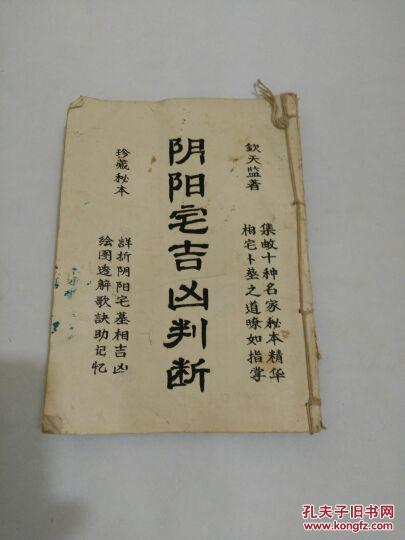 钦天监著
集数十种名家秘本精华
相宅卜墓之道瞭如指掌
阴阳宅吉凶判断
珍藏秘本
詳析阴阳宅墓相吉凶
绘图透解歌訣助记忆
孔夫子旧书网